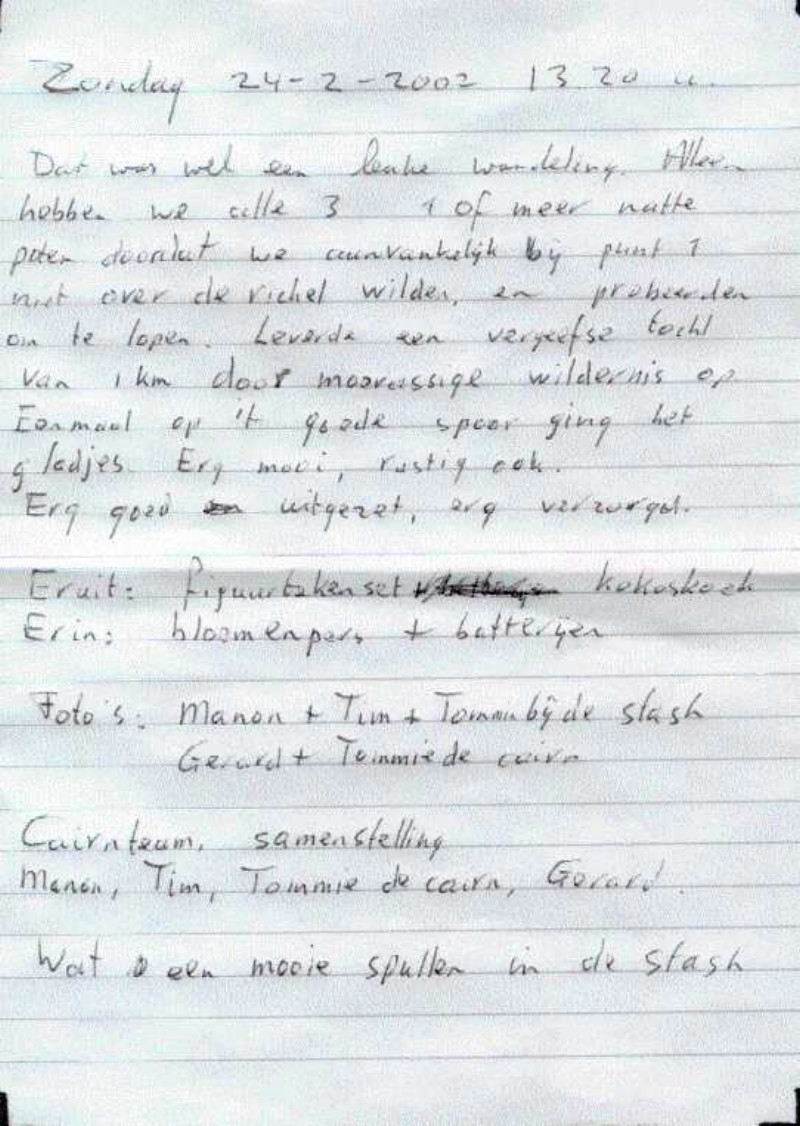 Zondag 24-2-2002 13.20 u.
Dat was wel een leuke wandeling. Alleen
hebben we alle 3 1 of meer natte
poten doordat we aanvankelijk bij punt 1
niet over de richel wilden, en probeerden
om te lopen. Leverde een vergeefse tocht
van 1 km door moerassige wildernis op
Eenmaal op 't goede spoor ging het
gladjes. Erg mooi, rustig ook.
Erg goed uitgezet, erg verzorgd.
Eruit: figuurtekenset kokoskoek
Erin: bloemenpers + batterijen
Foto's: Manon + Tim + Tommie bij de stash
Gerard + Tommie de cairn
Cairnteam, samenstelling
Manon, Tim, Tommie de cairn, Gerard.
Wat een mooie spullen in de stash